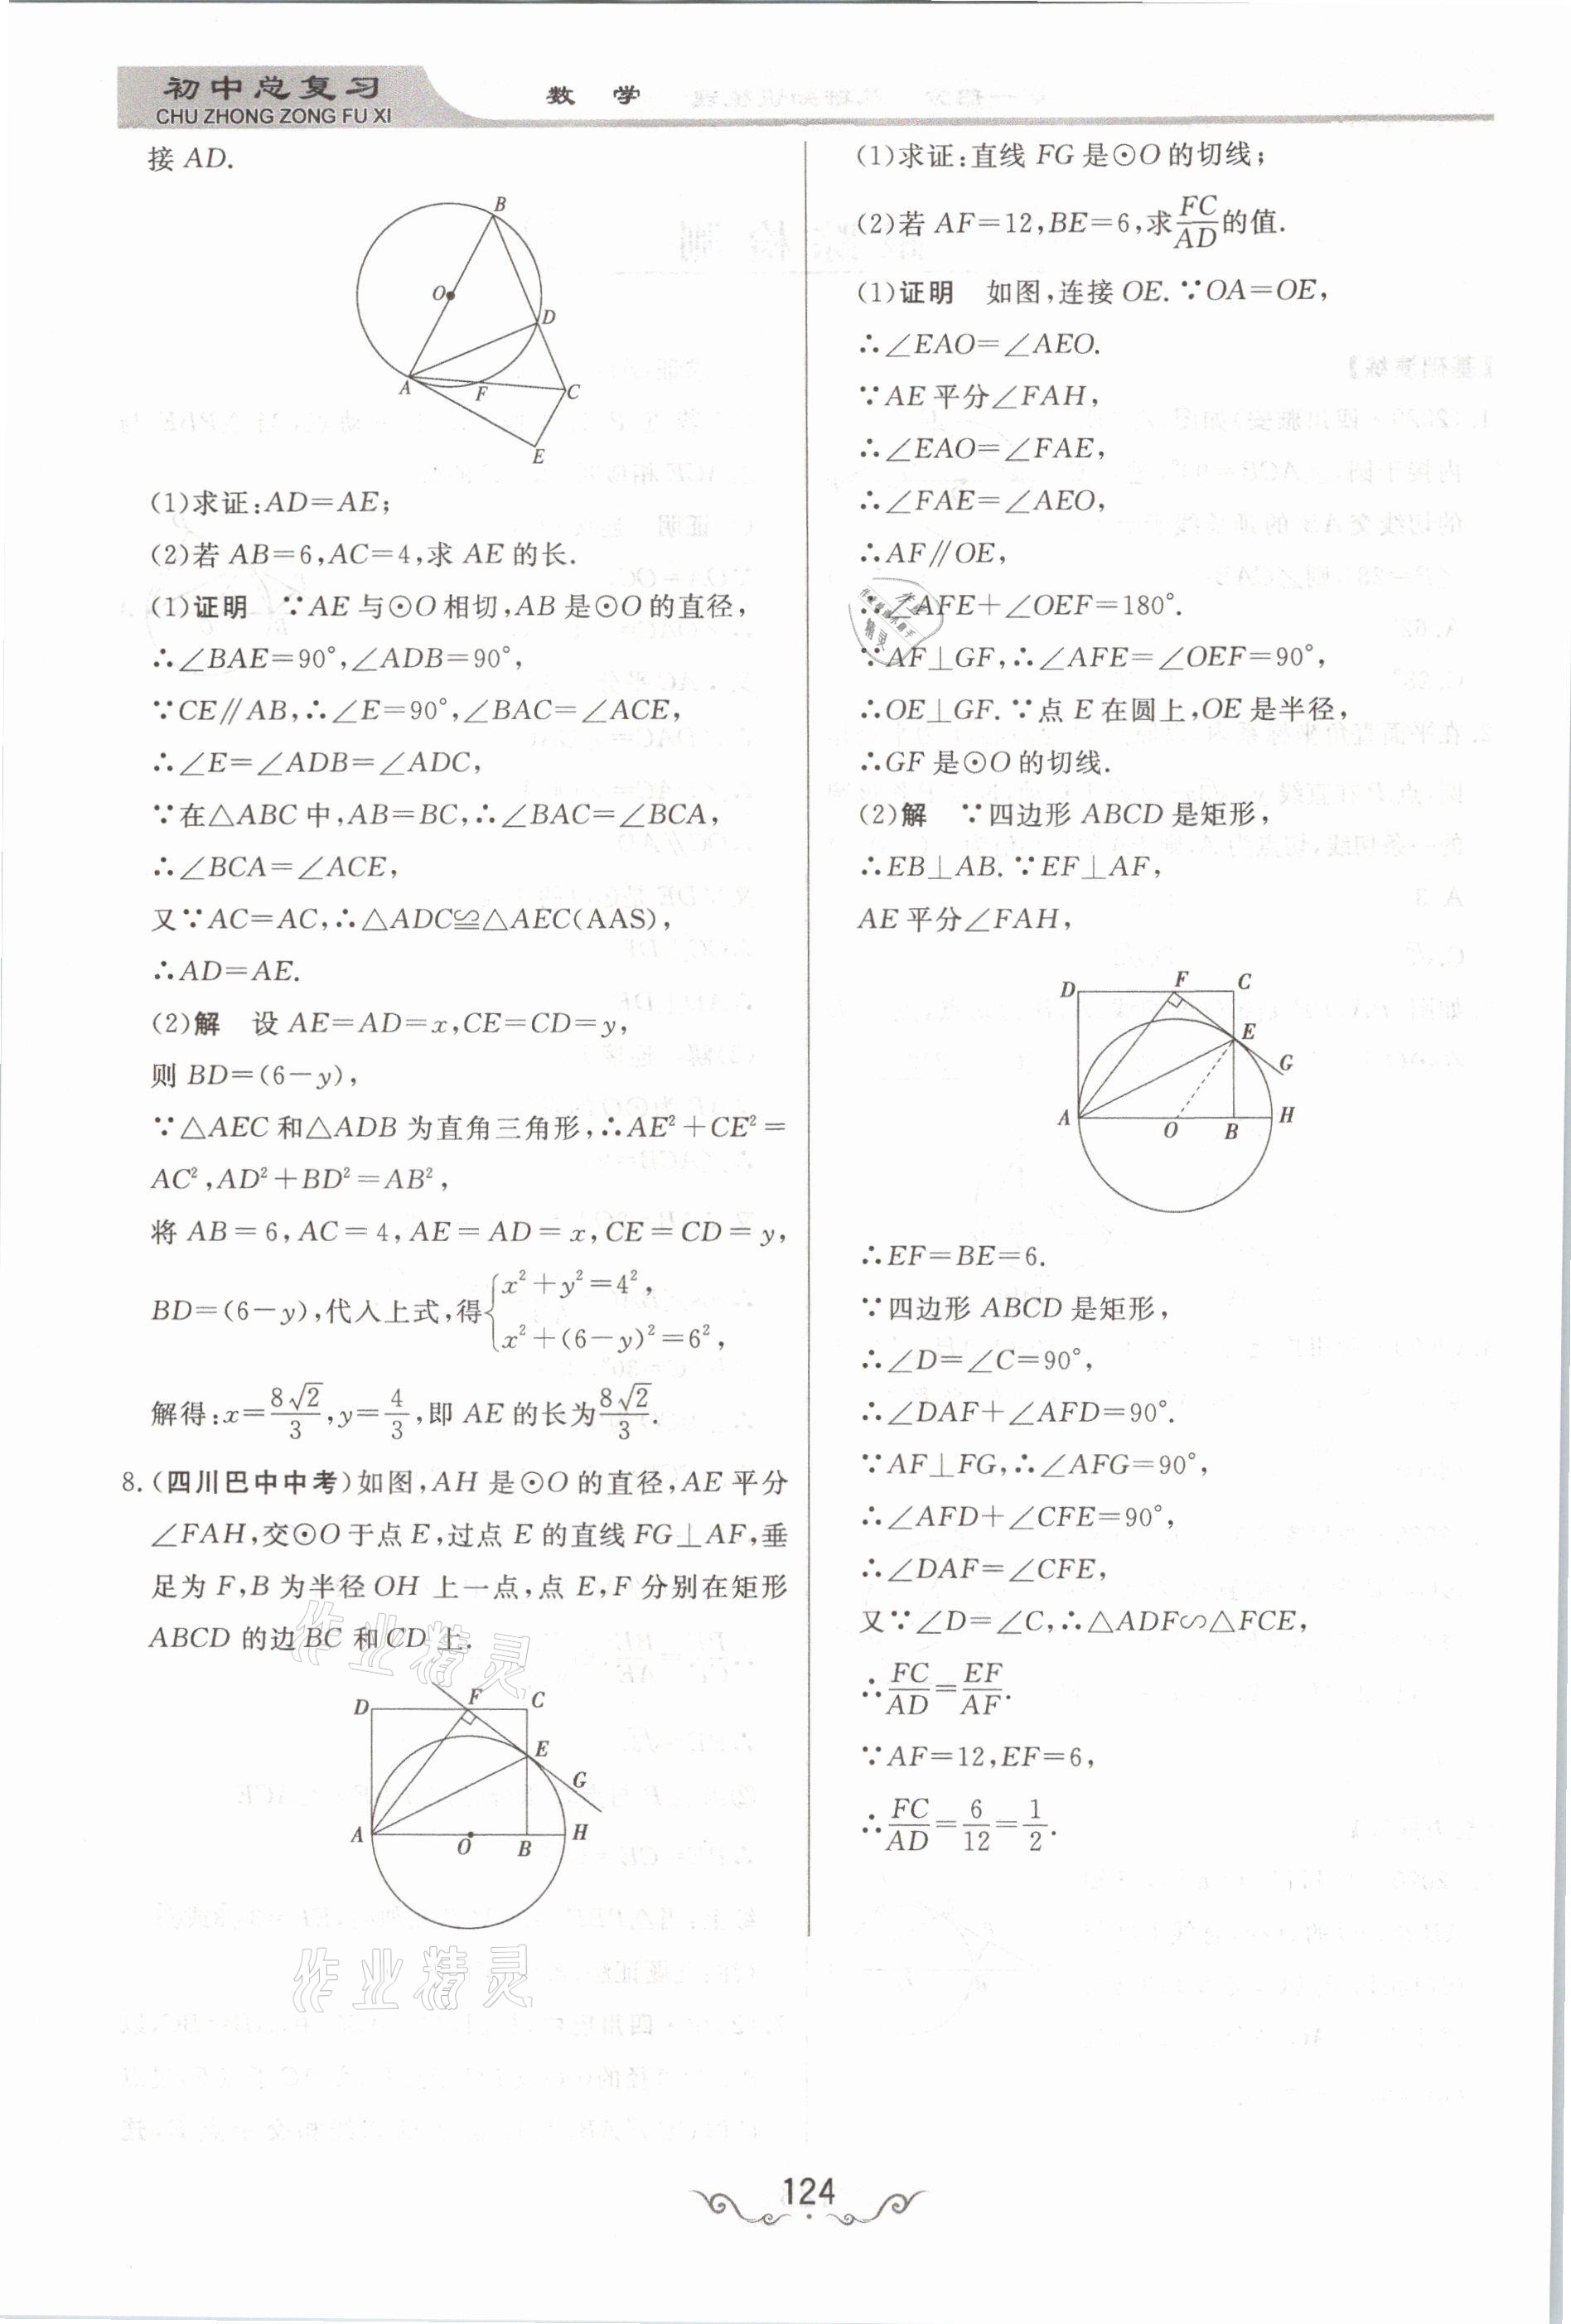 初中总复习
CHU ZHONG ZONG FU XI
数 学
接 AD.
B
O
D
A
F
C
E
(1)求证:AD=AE;
(2)若 AB=6,AC=4,求 AE 的长.
(1)证明 ∵AE 与⊙O 相切,AB 是⊙O 的直径,
∴∠BAE=90°,∠ADB=90°,
∵CE∥AB,∴∠E=90°,∠BAC=∠ACE,
∴∠E=∠ADB=∠ADC,
∵在△ABC 中,AB=BC,∴∠BAC=∠BCA,
∴∠BCA=∠ACE,
又∵AC=AC,∴△ADC≌△AEC(AAS),
∴AD=AE.
(2)解 设 AE=AD=x,CE=CD=y,
则 BD=(6-y),
∵△AEC 和△ADB 为直角三角形,∴AE²+CE²=
AC²,AD²+BD²=AB²,
将 AB=6,AC=4,AE=AD=x,CE=CD=y,
BD=(6-y),代入上式,得{x²+y²=4²,
x²+(6-y)²=6²,
解得:x=8√2/3,y=4/3,即 AE 的长为8√2/3.
8.(四川巴中中考)如图,AH 是⊙O 的直径,AE 平分
∠FAH,交⊙O 于点 E,过点 E 的直线 FG⊥AF,垂
足为 F,B 为半径 OH 上一点,点 E,F 分别在矩形
ABCD 的边 BC 和 CD 上.
作业精灵
D
F
C
E
G
A
O
B
H
作业精灵
(1)求证:直线 FG 是⊙O 的切线;
(2)若 AF=12,BE=6,求FC/AD的值.
(1)证明 如图,连接 OE.∵OA=OE,
∴∠EAO=∠AEO.
∵AE 平分∠FAH,
∴∠EAO=∠FAE,
∴∠FAE=∠AEO,
∴AF∥OE,
∴∠AFE+∠OEF=180°.
∵AF⊥GF,∴∠AFE=∠OEF=90°,
∴OE⊥GF.∵点 E 在圆上,OE 是半径,
∴GF 是⊙O 的切线.
(2)解 ∵四边形 ABCD 是矩形,
∴EB⊥AB.∵EF⊥AF,
AE 平分∠FAH,
D
F
C
E
G
A
O
B
H
∴EF=BE=6.
∵四边形 ABCD 是矩形,
∴∠D=∠C=90°,
∴∠DAF+∠AFD=90°.
∵AF⊥FG,∴∠AFG=90°,
∴∠AFD+∠CFE=90°,
∴∠DAF=∠CFE,
又∵∠D=∠C,∴△ADF∽△FCE,
∴FC/AD=EF/AF.
∵AF=12,EF=6,
∴FC/AD=6/12=1/2.
124